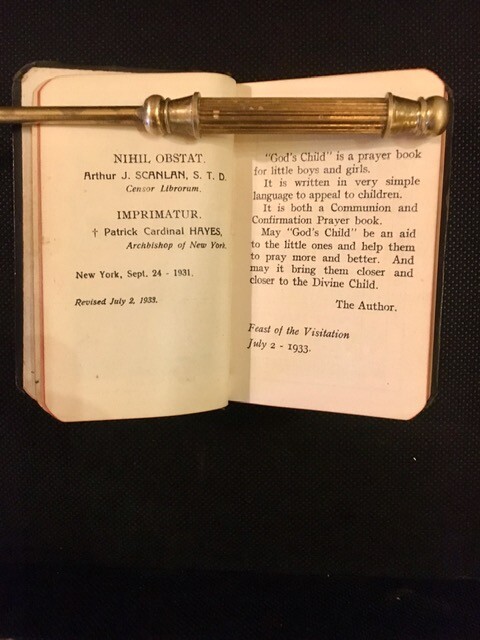 NIHIL OBSTAT.
Arthur J. SCANLAN, S. T. D.
Censor Librorum.
IMPRIMATUR.
† Patrick Cardinal HAYES,
Archbishop of New York.
New York, Sept. 24 - 1931.
Revised July 2, 1933.
"God's Child" is a prayer book
for little boys and girls.
It is written in very simple
language to appeal to children.
It is both a Communion and
Confirmation Prayer book.
May "God's Child" be an aid
to the little ones and help them
to pray more and better. And
may it bring them closer and
closer to the Divine Child.
The Author.
Feast of the Visitation
July 2 - 1933.